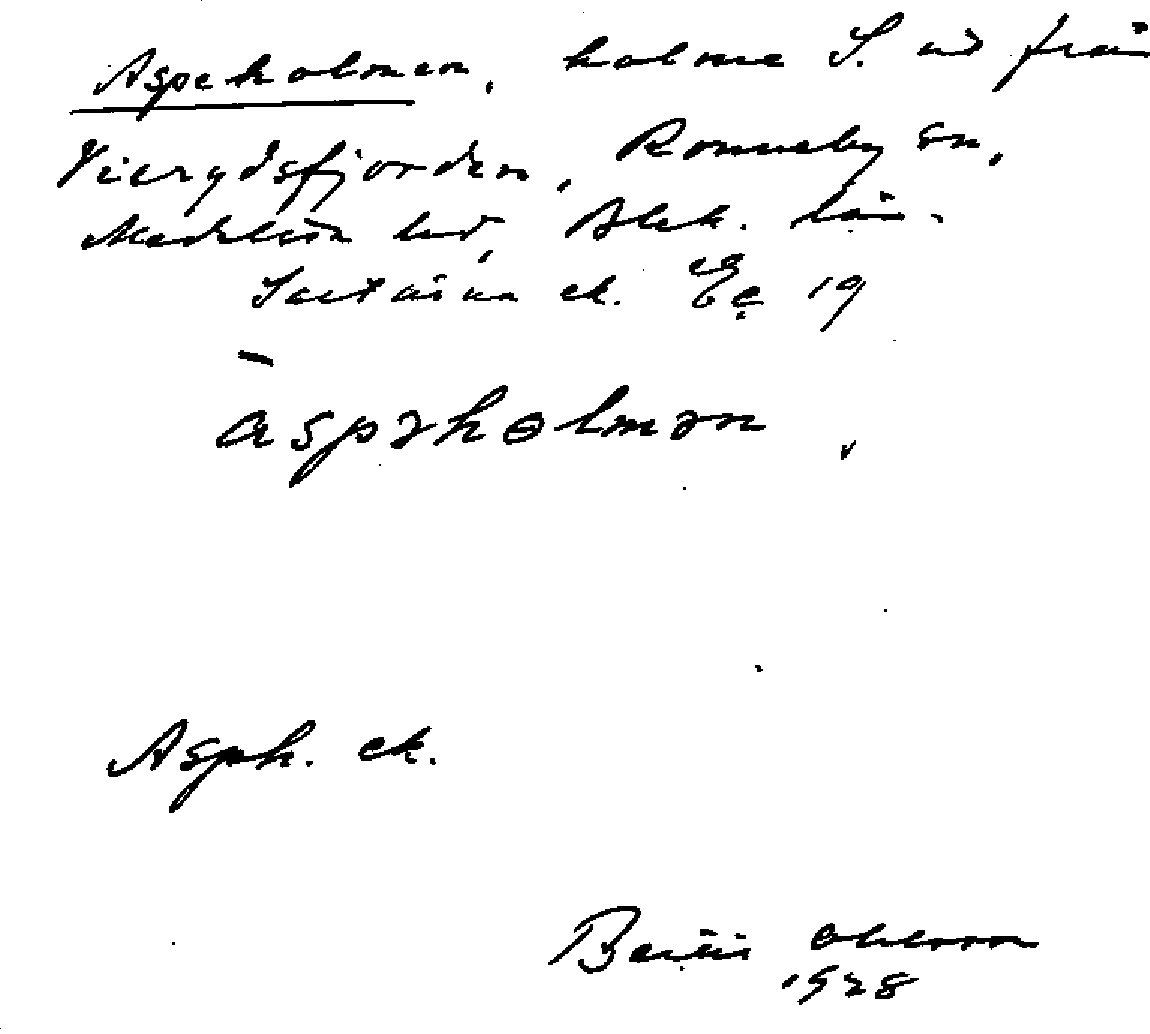 Aspeholmen, holme S. ut från
Vierydsfjorden, Ronneby sn,
Medelsta hd, Blek. län.
ek. Ec 19
aspəhɵlmən
Asph. ek.
Bertil Ohlsson
1928